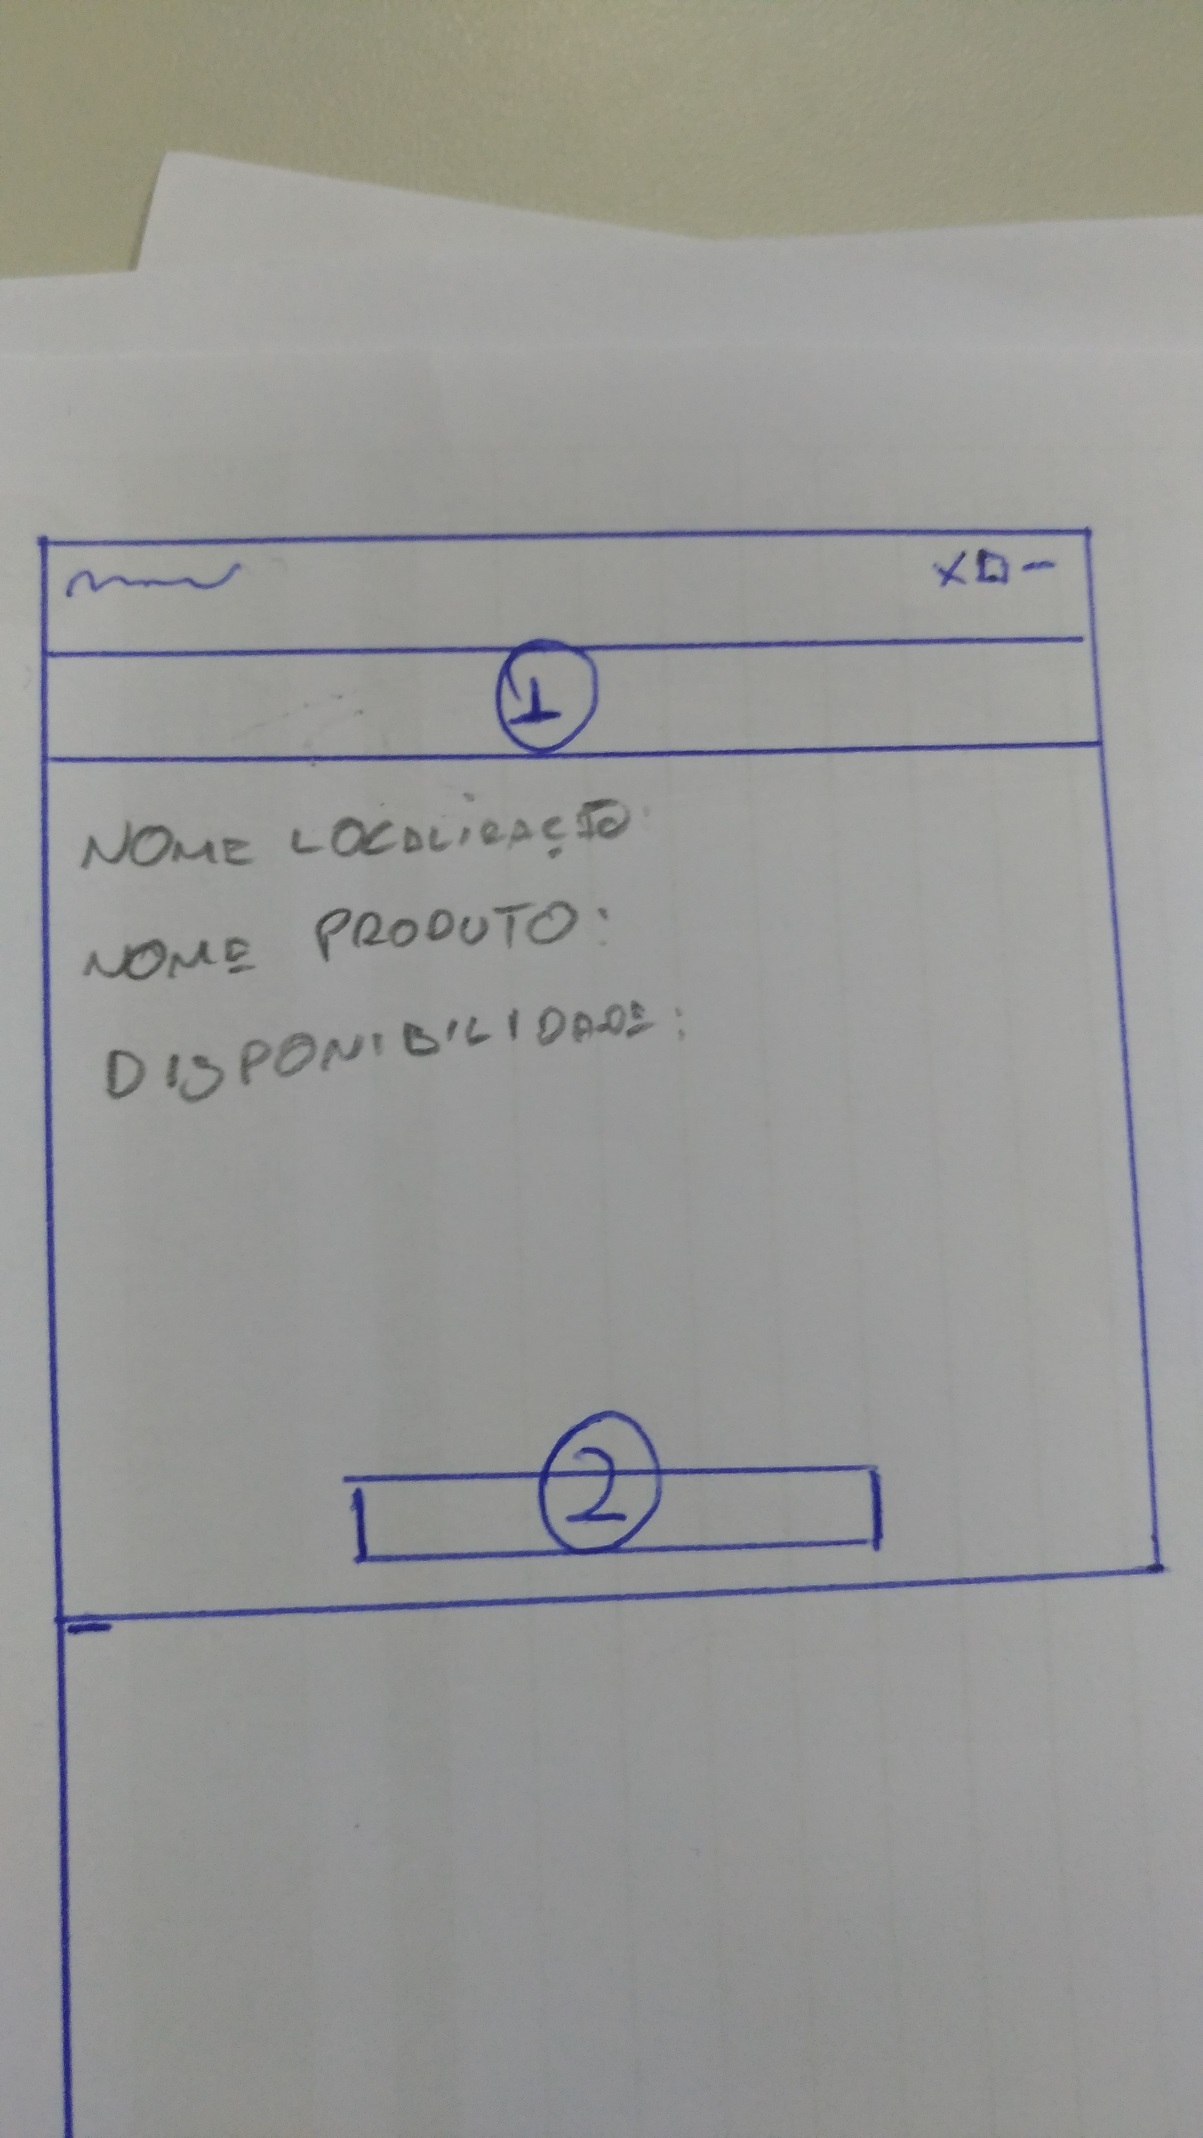 1
NOME LOCALIZAÇÃO:
NOME PRODUTO:
DISPONIBILIDADE:
2